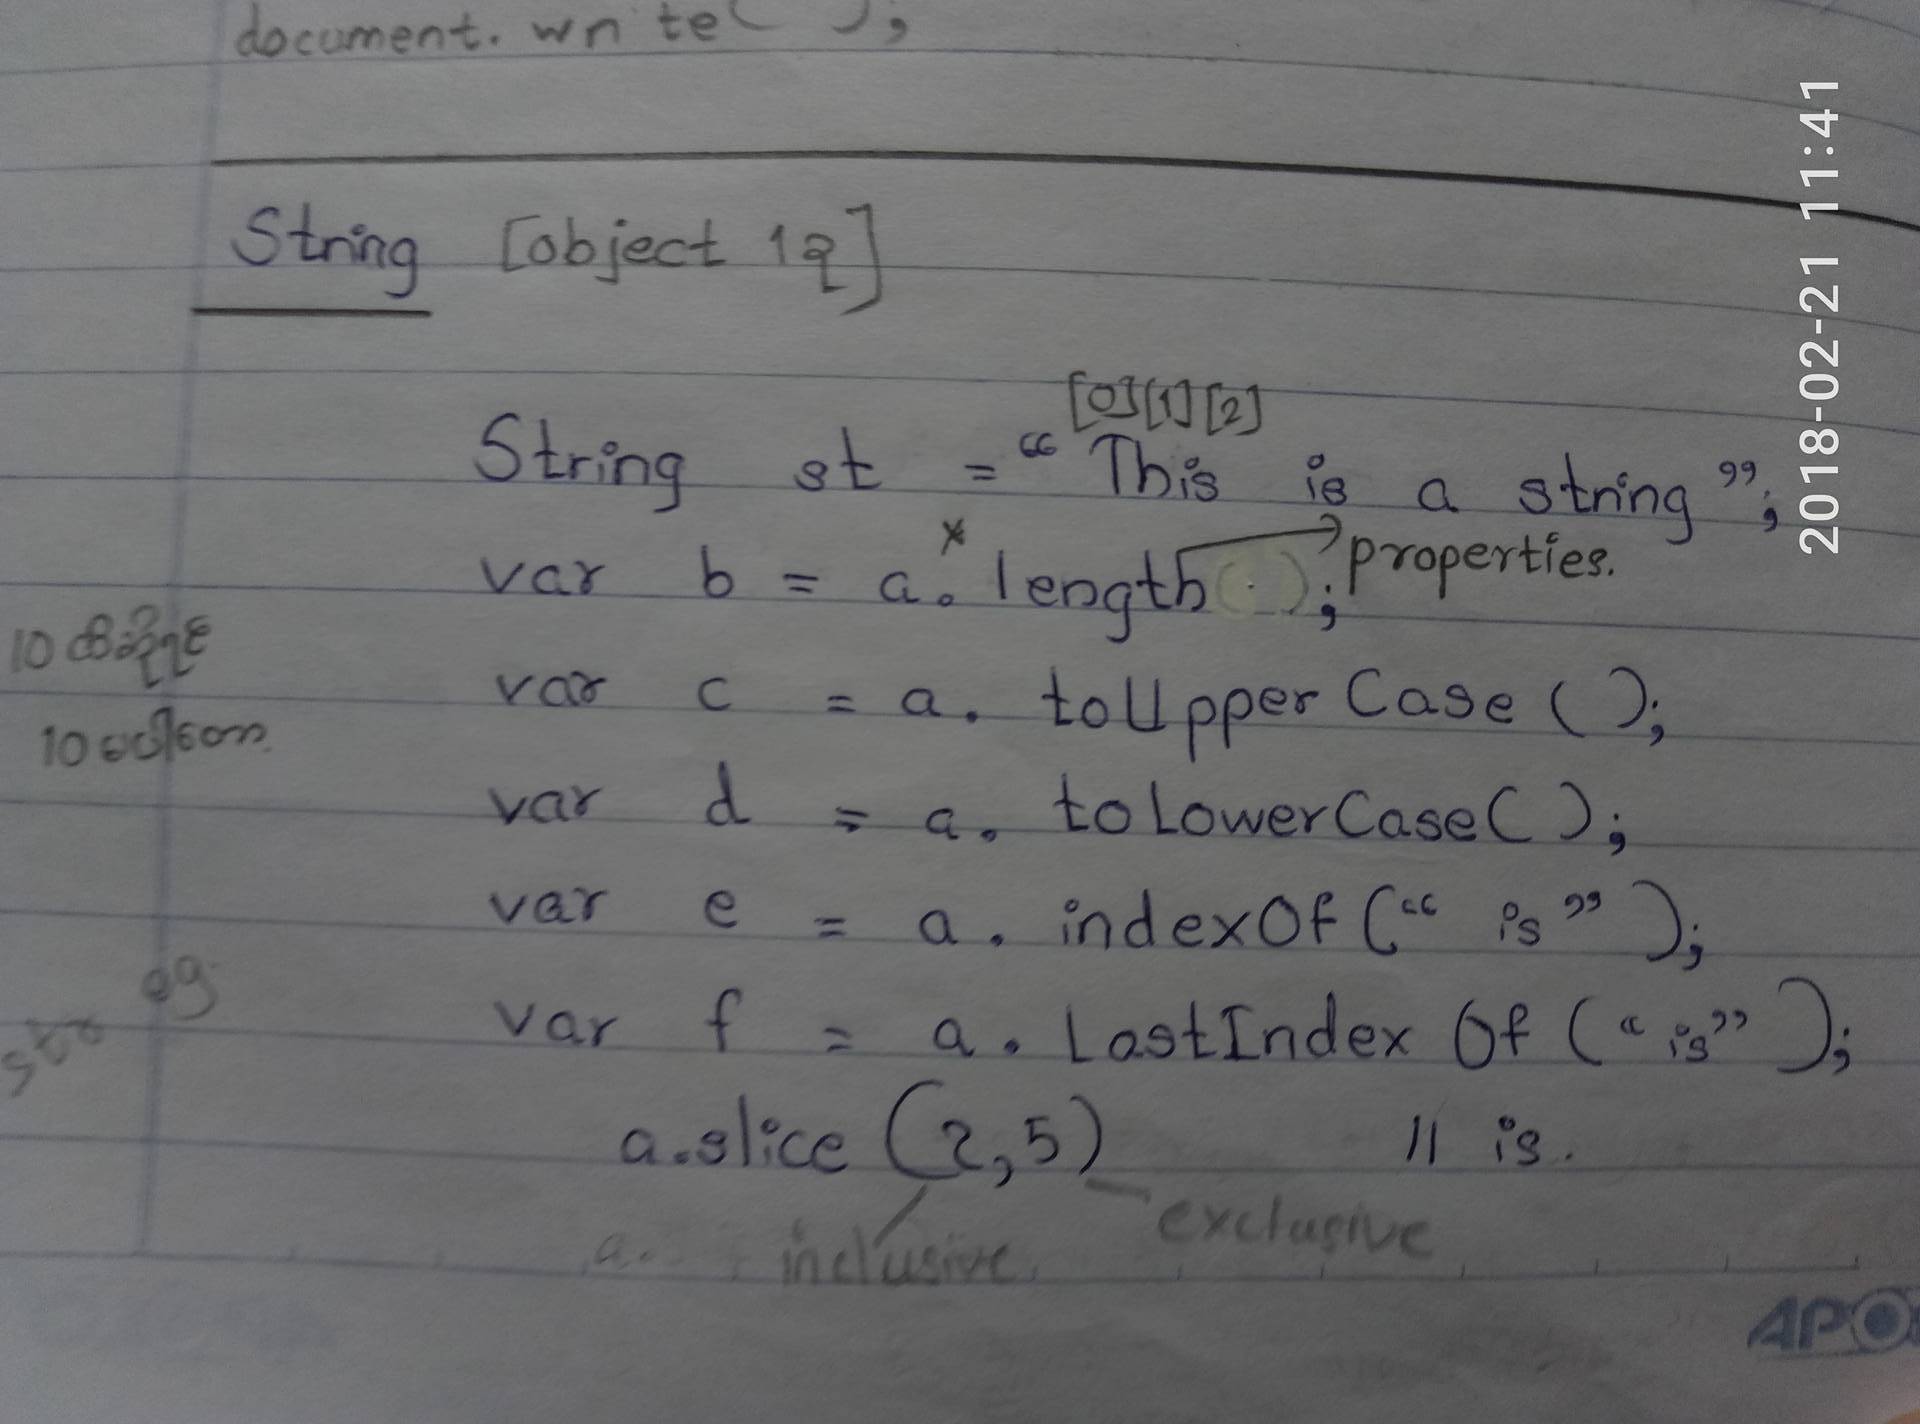 document. write( );
String [object 1ခု]
[0][1][2]
String st = “ This is a string ”;
x
var b = a. length( ); properties.
var c = a. toUpper Case ( );
10
var d = a. toLowerCase( );
var e = a. indexOf (“ is ”);
eg
var f = a. LastIndex Of (“ is” );
str
a.slice (2,5) // is.
a. inclusive exclusive
2018-02-21 11:41